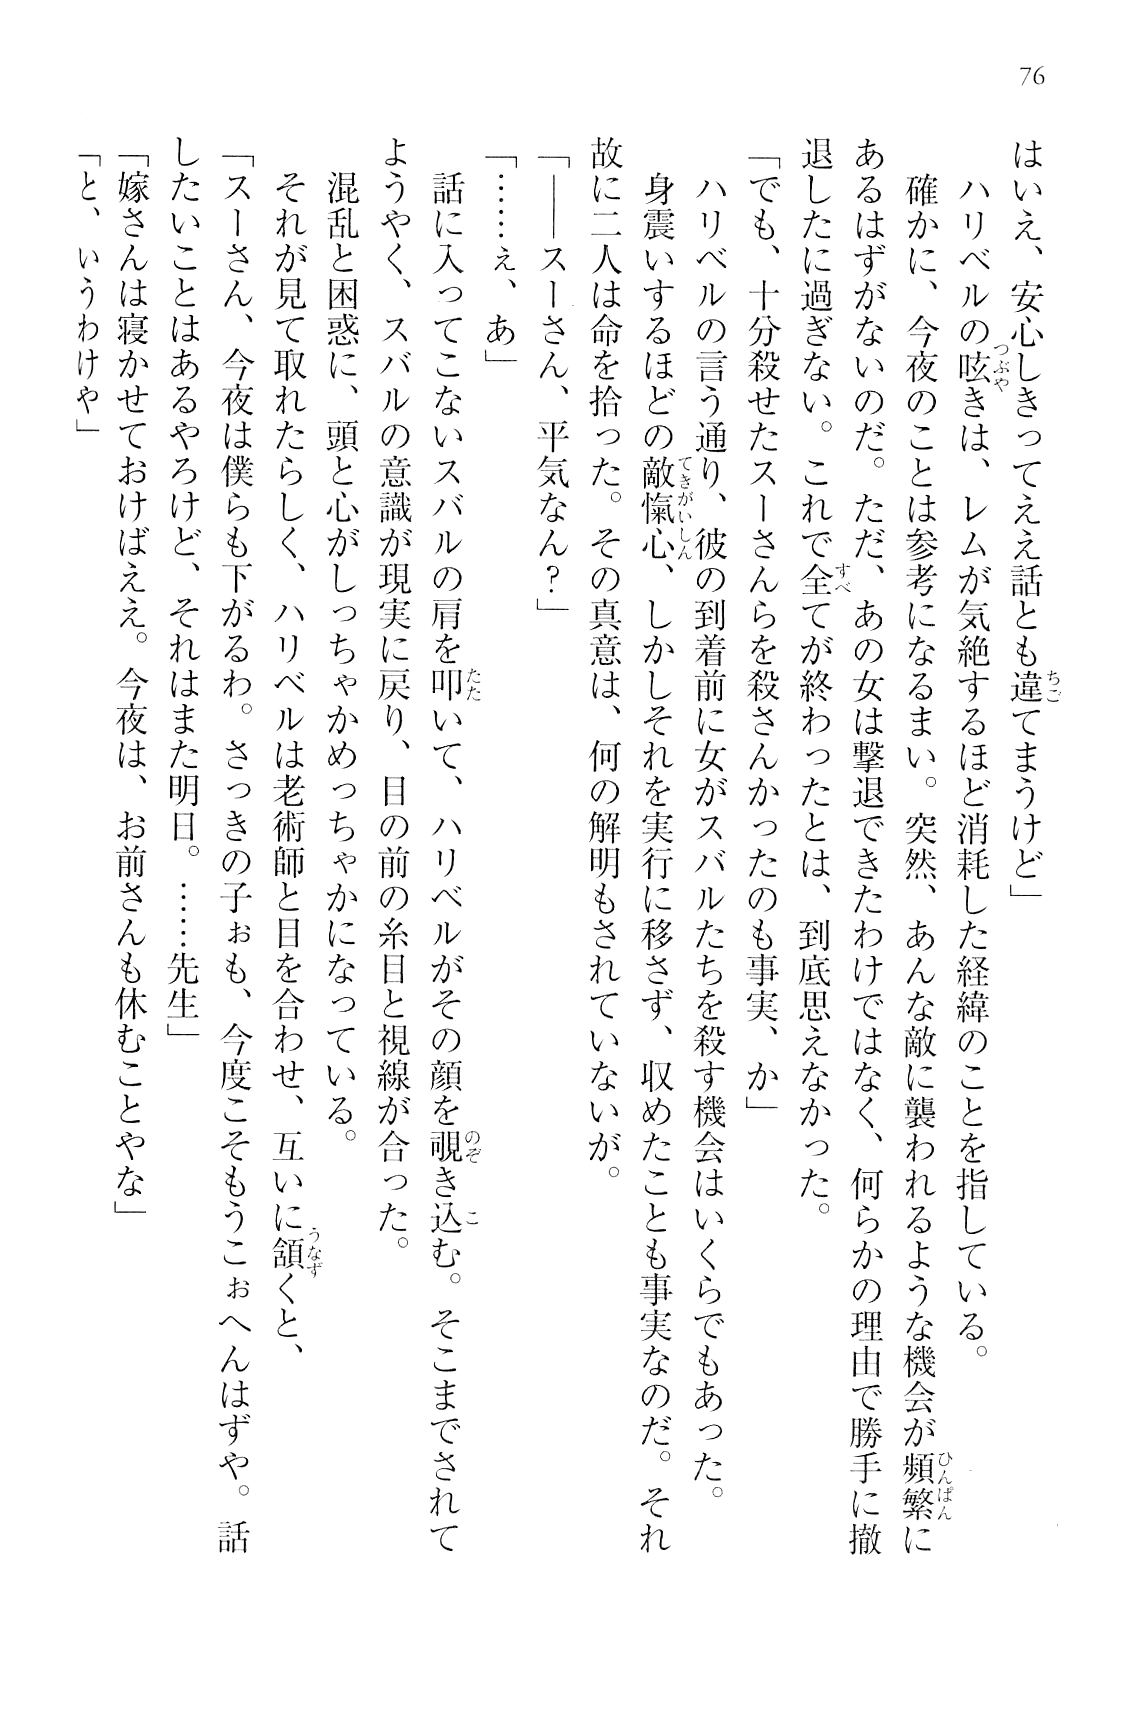 76
はいえ、安心しきってええ話とも違てまうけど」
ハリベルの呟きは、レムが気絶するほど消耗した経緯のことを指している。
確かに、今夜のことは参考になるまい。突然、あんな敵に襲われるような機会が頻繁に
あるはずがないのだ。ただ、あの女は撃退できたわけではなく、何らかの理由で勝手に撤
退したに過ぎない。これで全てが終わったとは、到底思えなかった。
「でも、十分殺せたスーさんらを殺さんかったのも事実、か」
ハリベルの言う通り、彼の到着前に女がスバルたちを殺す機会はいくらでもあった。
身震いするほどの敵愾心、しかしそれを実行に移さず、収めたことも事実なのだ。それ
故に二人は命を拾った。その真意は、何の解明もされていないが。
「――スーさん、平気なん？」
「……ぇ、あ」
話に入ってこないスバルの肩を叩いて、ハリベルがその顔を覗き込む。そこまでされて
ようやく、スバルの意識が現実に戻り、目の前の糸目と視線が合った。
混乱と困惑に、頭と心がしっちゃかめっちゃかになっている。
それが見て取れたらしく、ハリベルは老術師と目を合わせ、互いに頷くと、
「スーさん、今夜は僕らも下がるわ。さっきの子ぉも、今度こそもうこぉへんはずや。話
したいことはあるやろけど、それはまた明日。……先生」
「嫁さんは寝かせておけばええ。今夜は、お前さんも休むことやな」
「と、いうわけや」